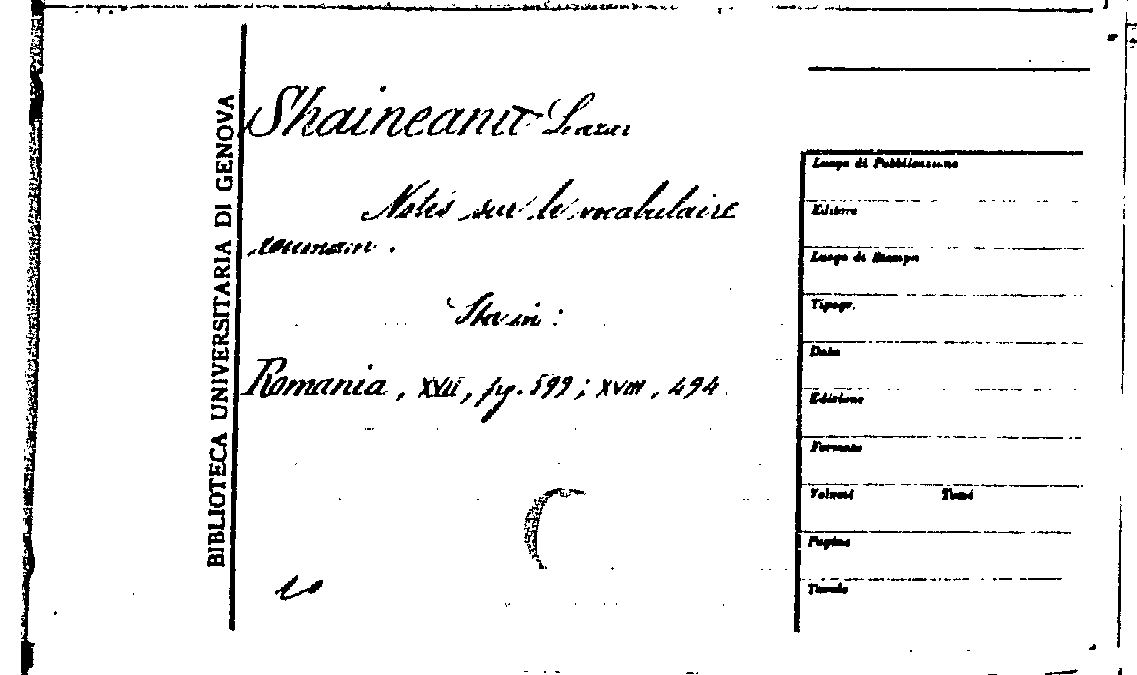 BIBLIOTECA UNIVERSITARIA DI GENOVA
Shaineanu Lazar
Notes sur le vocabulaire
roumain.
Sta in:
Romania, XVII, pg. 599; XVIII, 494
Luogo di Pubblicazione
Editore
Luogo di Stampa
Tipogr.
Data
Edizione
Formato
Volumi Tomi
Pagine
Tavole